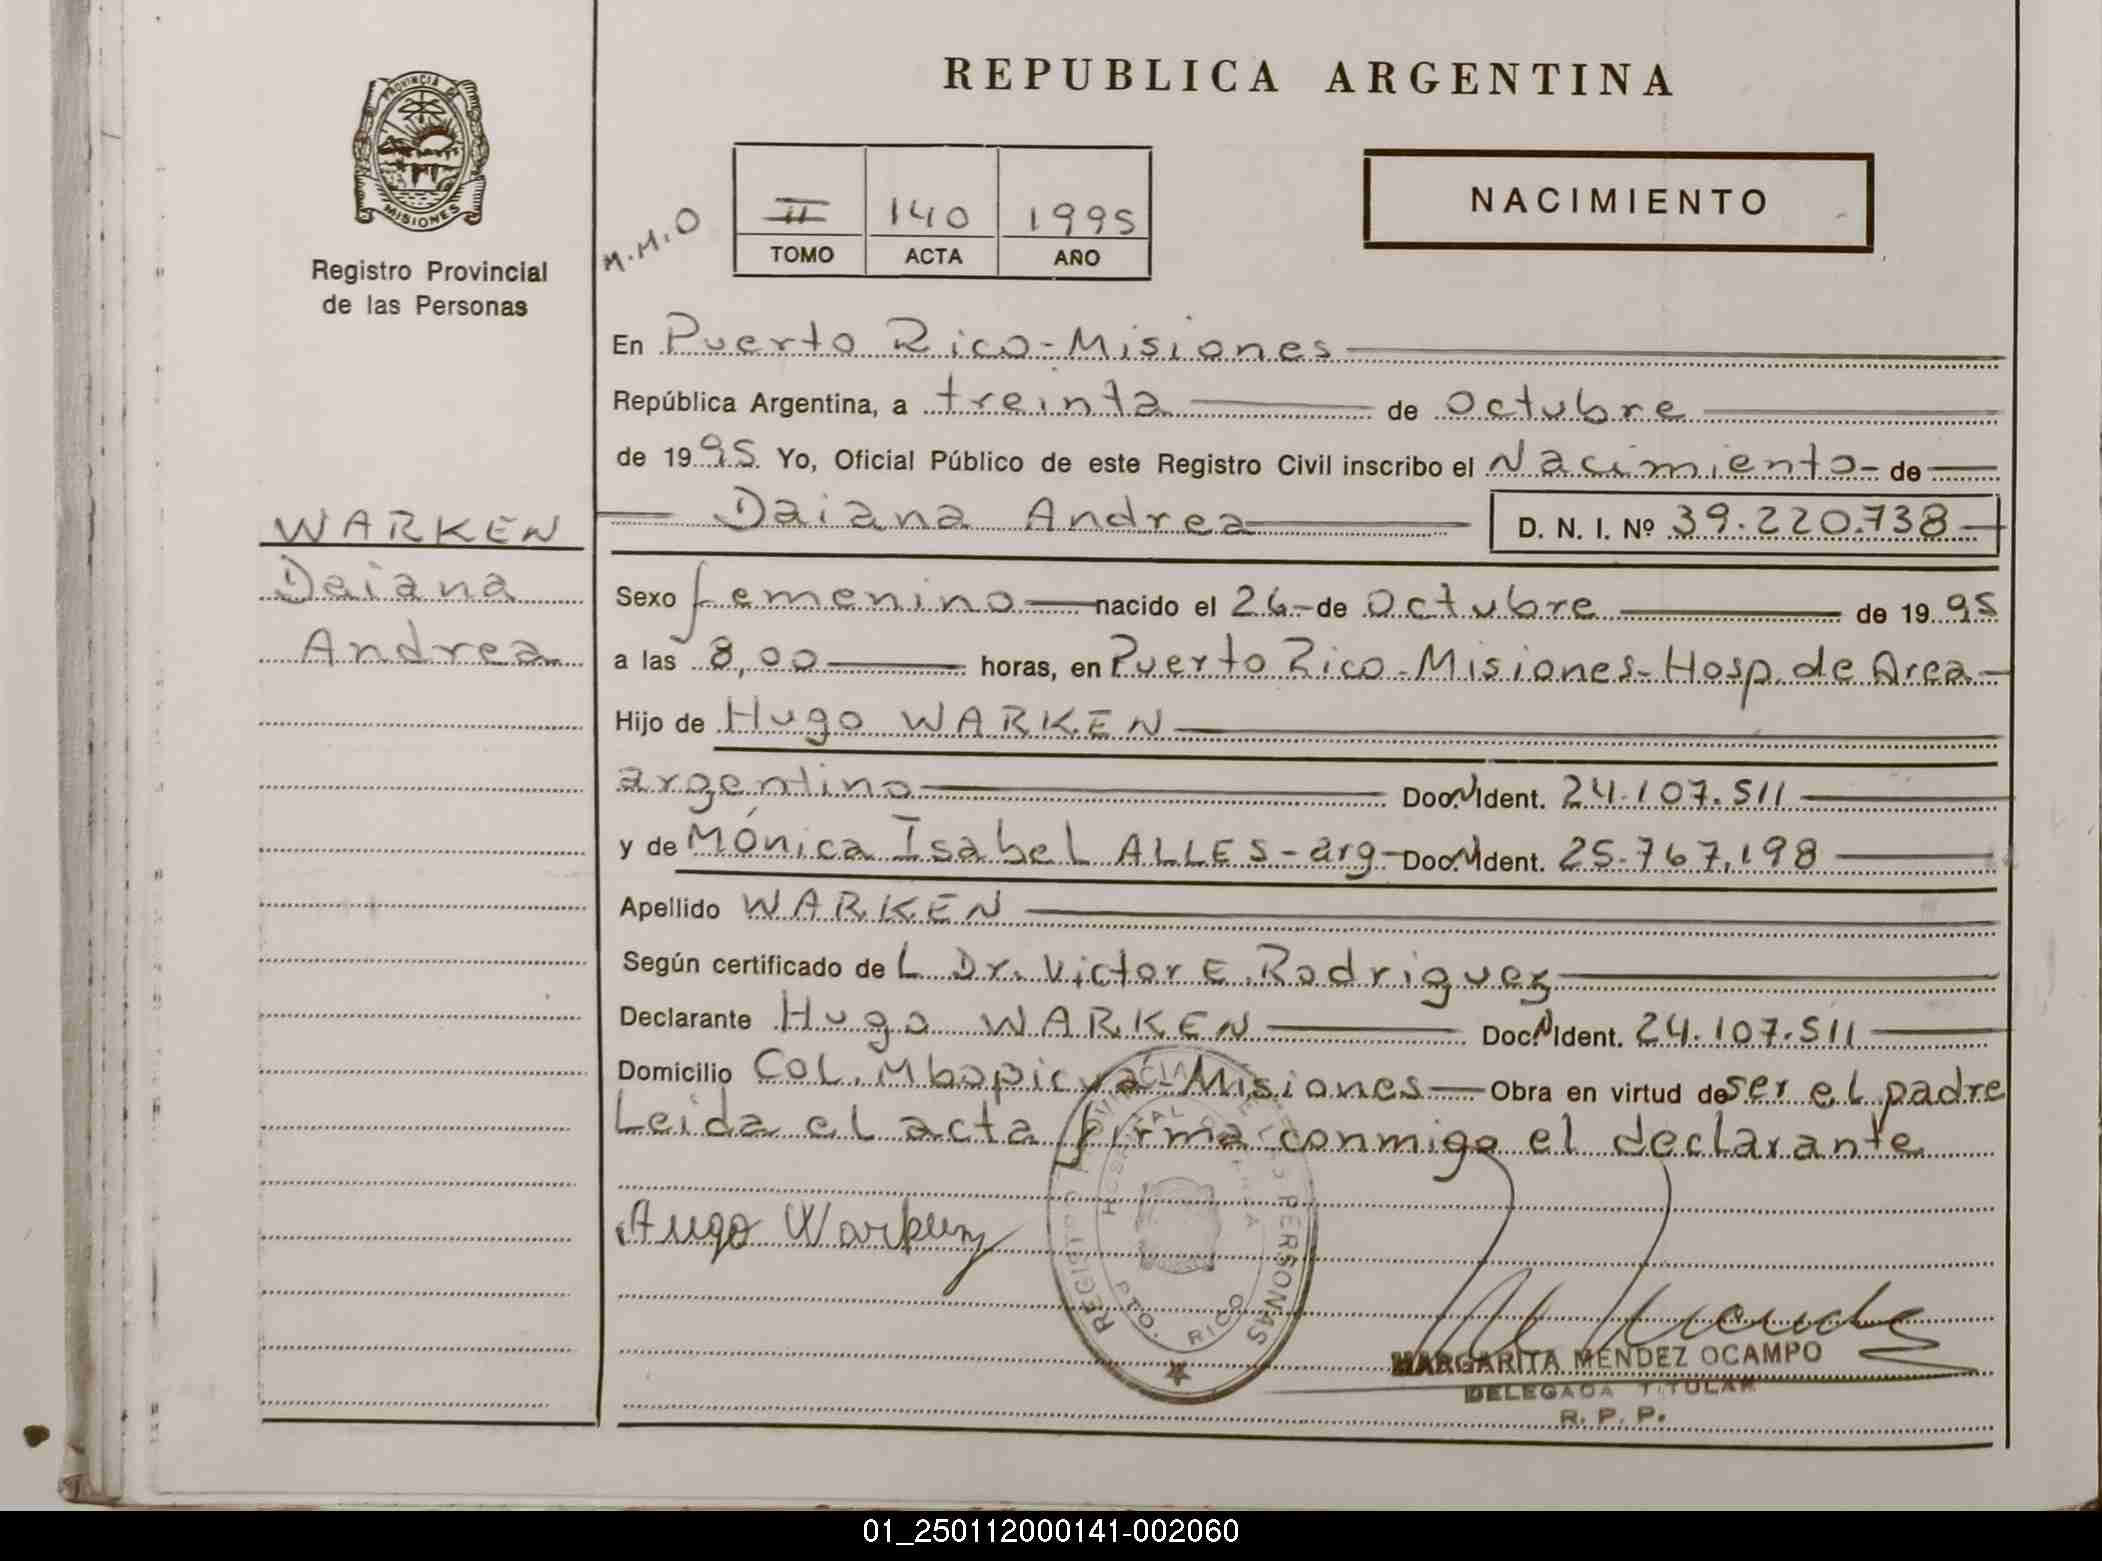 PROVINCIA DE
MISIONES
Registro Provincial
de las Personas
REPUBLICA ARGENTINA
NACIMIENTO
M.M.O
II 140 1995
TOMO ACTA AÑO
En Puerto Rico - Misiones
República Argentina, a treinta de octubre
de 1995 Yo, Oficial Público de este Registro Civil inscribo el Nacimiento - de
Daiana Andrea D. N. I. Nº 39.220.738
WARKEN
Daiana
Andrea
Sexo femenino nacido el 26 - de octubre de 1995
a las 8,00 horas, en Puerto Rico - Misiones - Hosp. de Area -
Hijo de Hugo WARKEN
argentino Doc. N Ident. 24.107.511
y de Mónica Isabel ALLES - arg - Doc. N Ident. 25.767.198
Apellido WARKEN
Según certificado de L Dr. Victor E. Rodriguez
Declarante Hugo WARKEN Doc. N Ident. 24.107.511
Domicilio Col. Mbopicuá - Misiones - Obra en virtud de ser el padre
Leida el acta firma conmigo el declarante
Hugo Warken
REGISTRO PROVINCIAL DE LAS PERSONAS
PTO. RICO
MARGARITA MENDEZ OCAMPO
DELEGADA TITULAR
R. P. P.
01_250112000141-002060